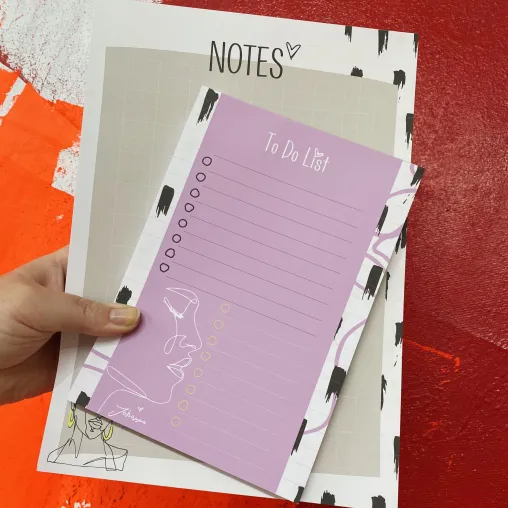 NOTES
To Do List